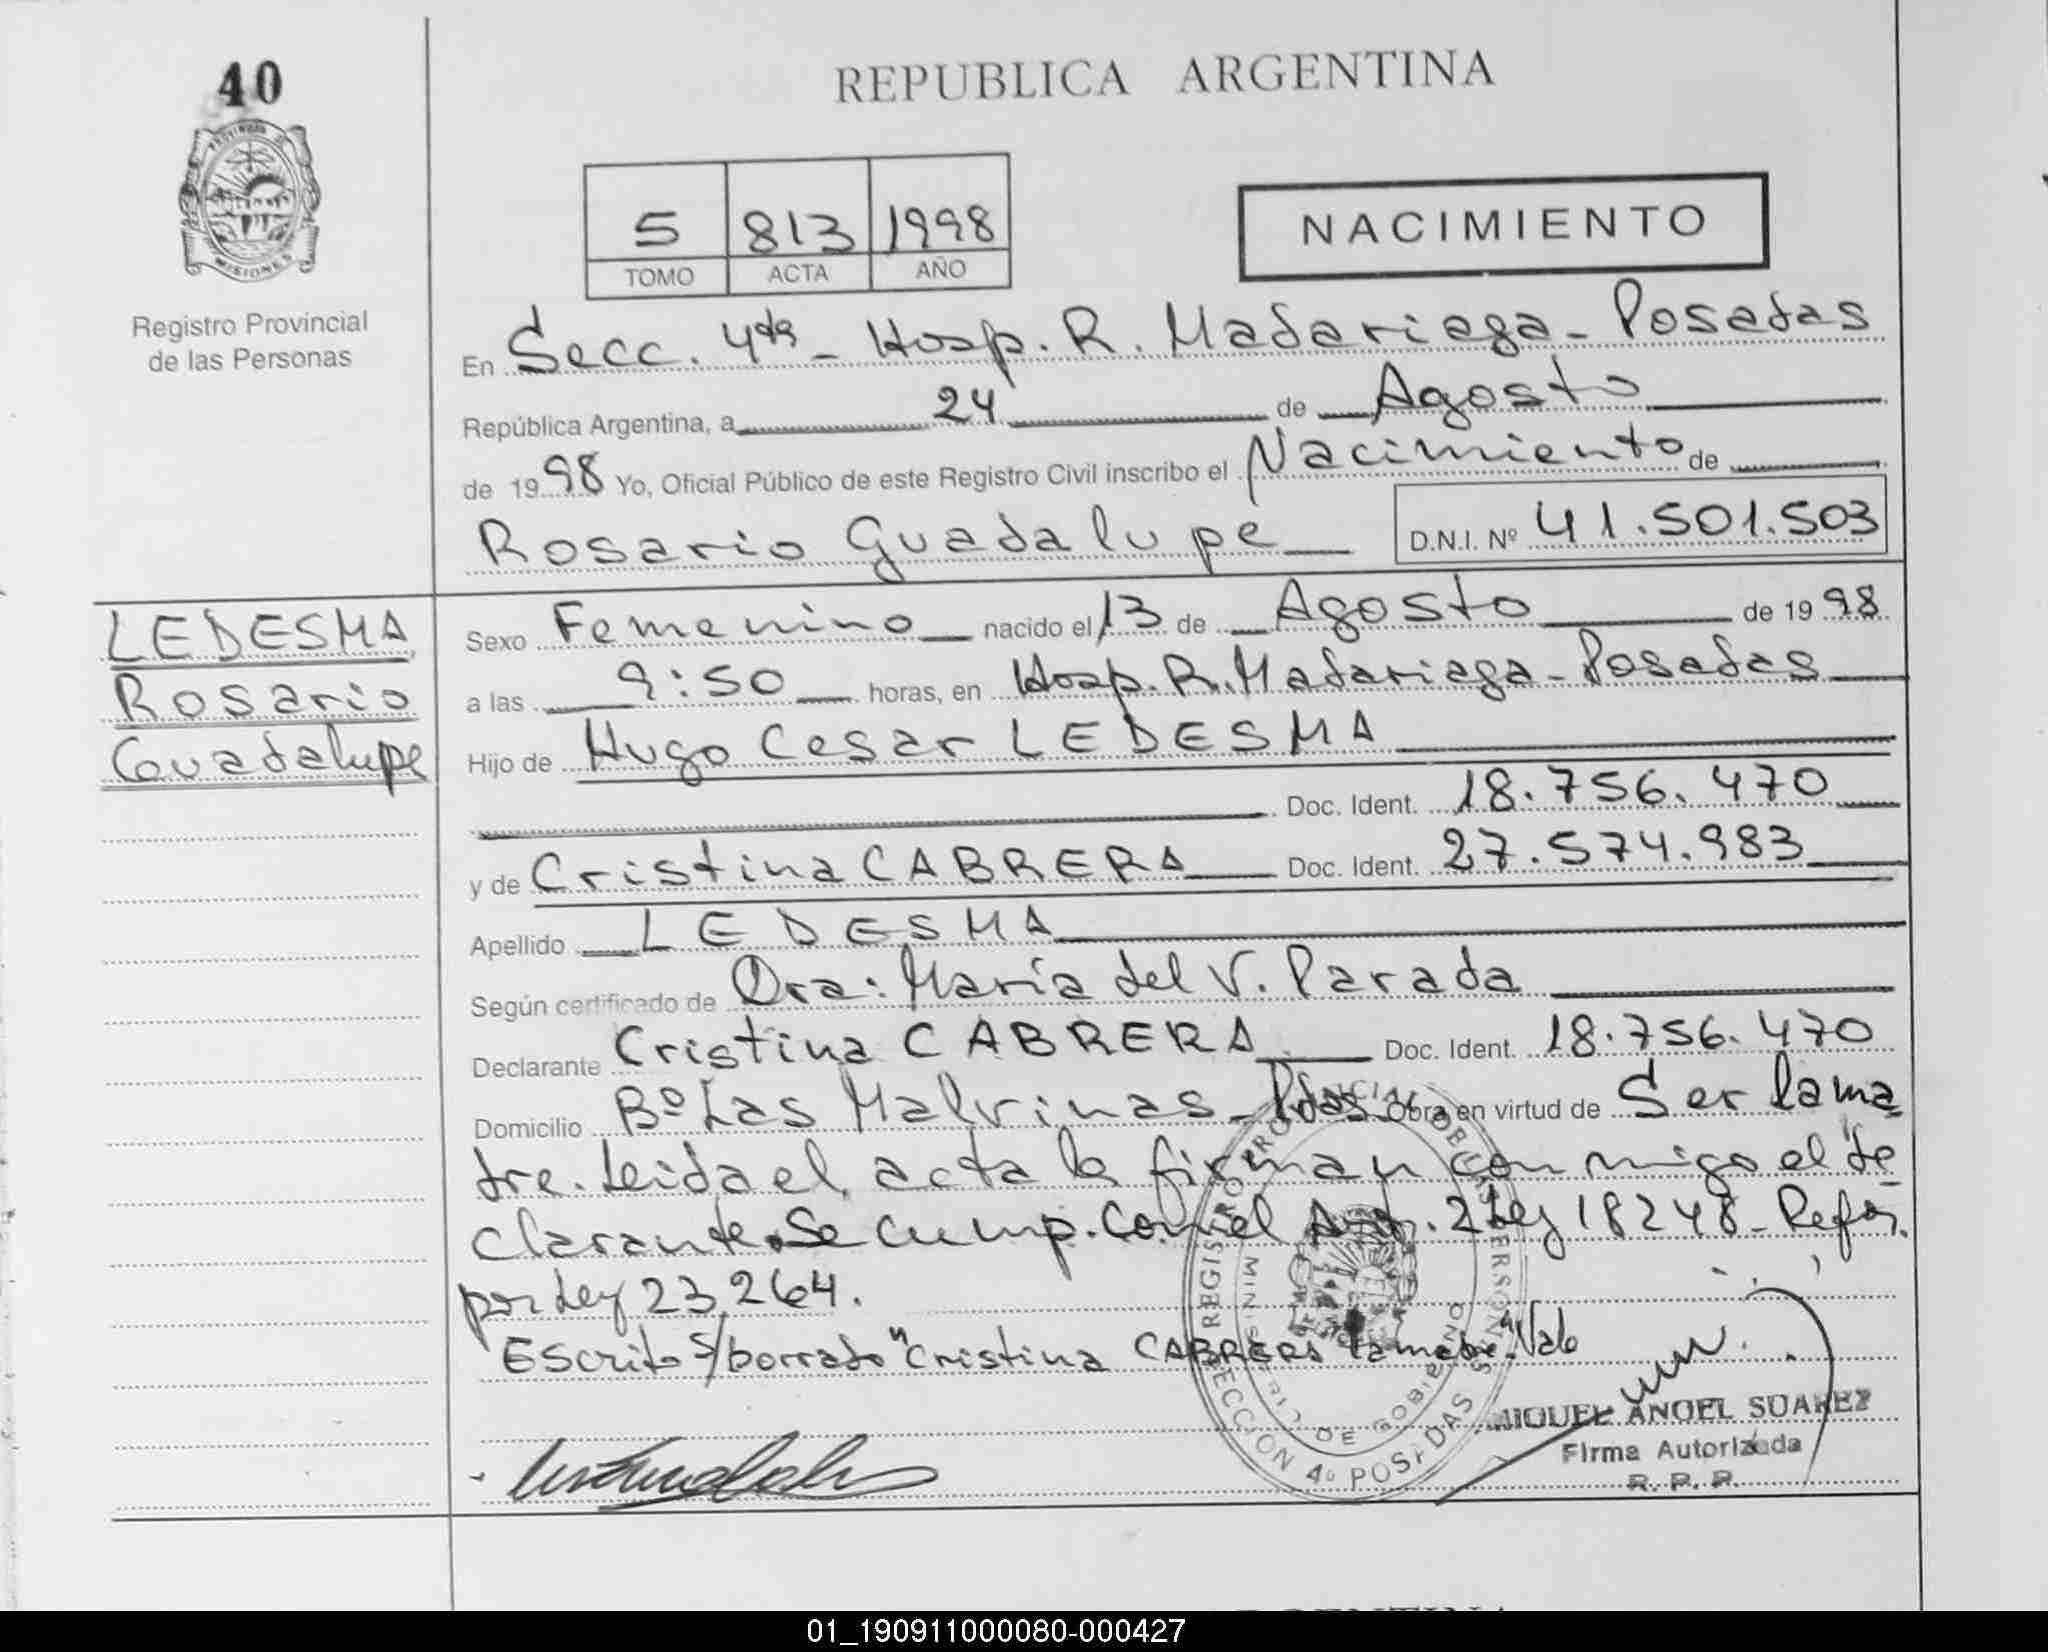 40
REPUBLICA ARGENTINA
PROVINCIA DE
MISIONES
Registro Provincial
de las Personas
5 813 1998
TOMO ACTA AÑO
NACIMIENTO
En Secc. 4ta - Hosp. R. Madariaga - Posadas
República Argentina, a 24 de Agosto
de 1998 Yo, Oficial Público de este Registro Civil inscribo el Nacimiento de
Rosario Guadalupe D.N.I. Nº 41.501.503
LEDESMA
Rosario
Guadalupe
Sexo Femenino nacido el 13 de Agosto de 1998
a las 9:50 horas, en Hosp. R. Madariaga - Posadas
Hijo de Hugo Cesar LEDESMA
Doc. Ident. 18.756.470
y de Cristina CABRERA Doc. Ident. 27.574.983
Apellido LEDESMA
Según certificado de Dra: María del V. Parada
Declarante Cristina CABRERA Doc. Ident. 18.756.470
Domicilio Bº Las Malvinas - Pdas Obra en virtud de Ser la ma
dre. Leida el acta la firman conmigo el de
clarante. Se cump. con el Art. 2 Ley 18248 - Refor.
por Ley 23,264.
Escrito s/borrado "Cristina CABRERA la madre" Vale
REGISTRO PROVINCIAL DE LAS PERSONAS
MINISTERIO DE GOBIERNO
SECCION 4º POSADAS
MIGUEL ANGEL SUAREZ
Firma Autorizada
R. P. P.
01_190911000080-000427